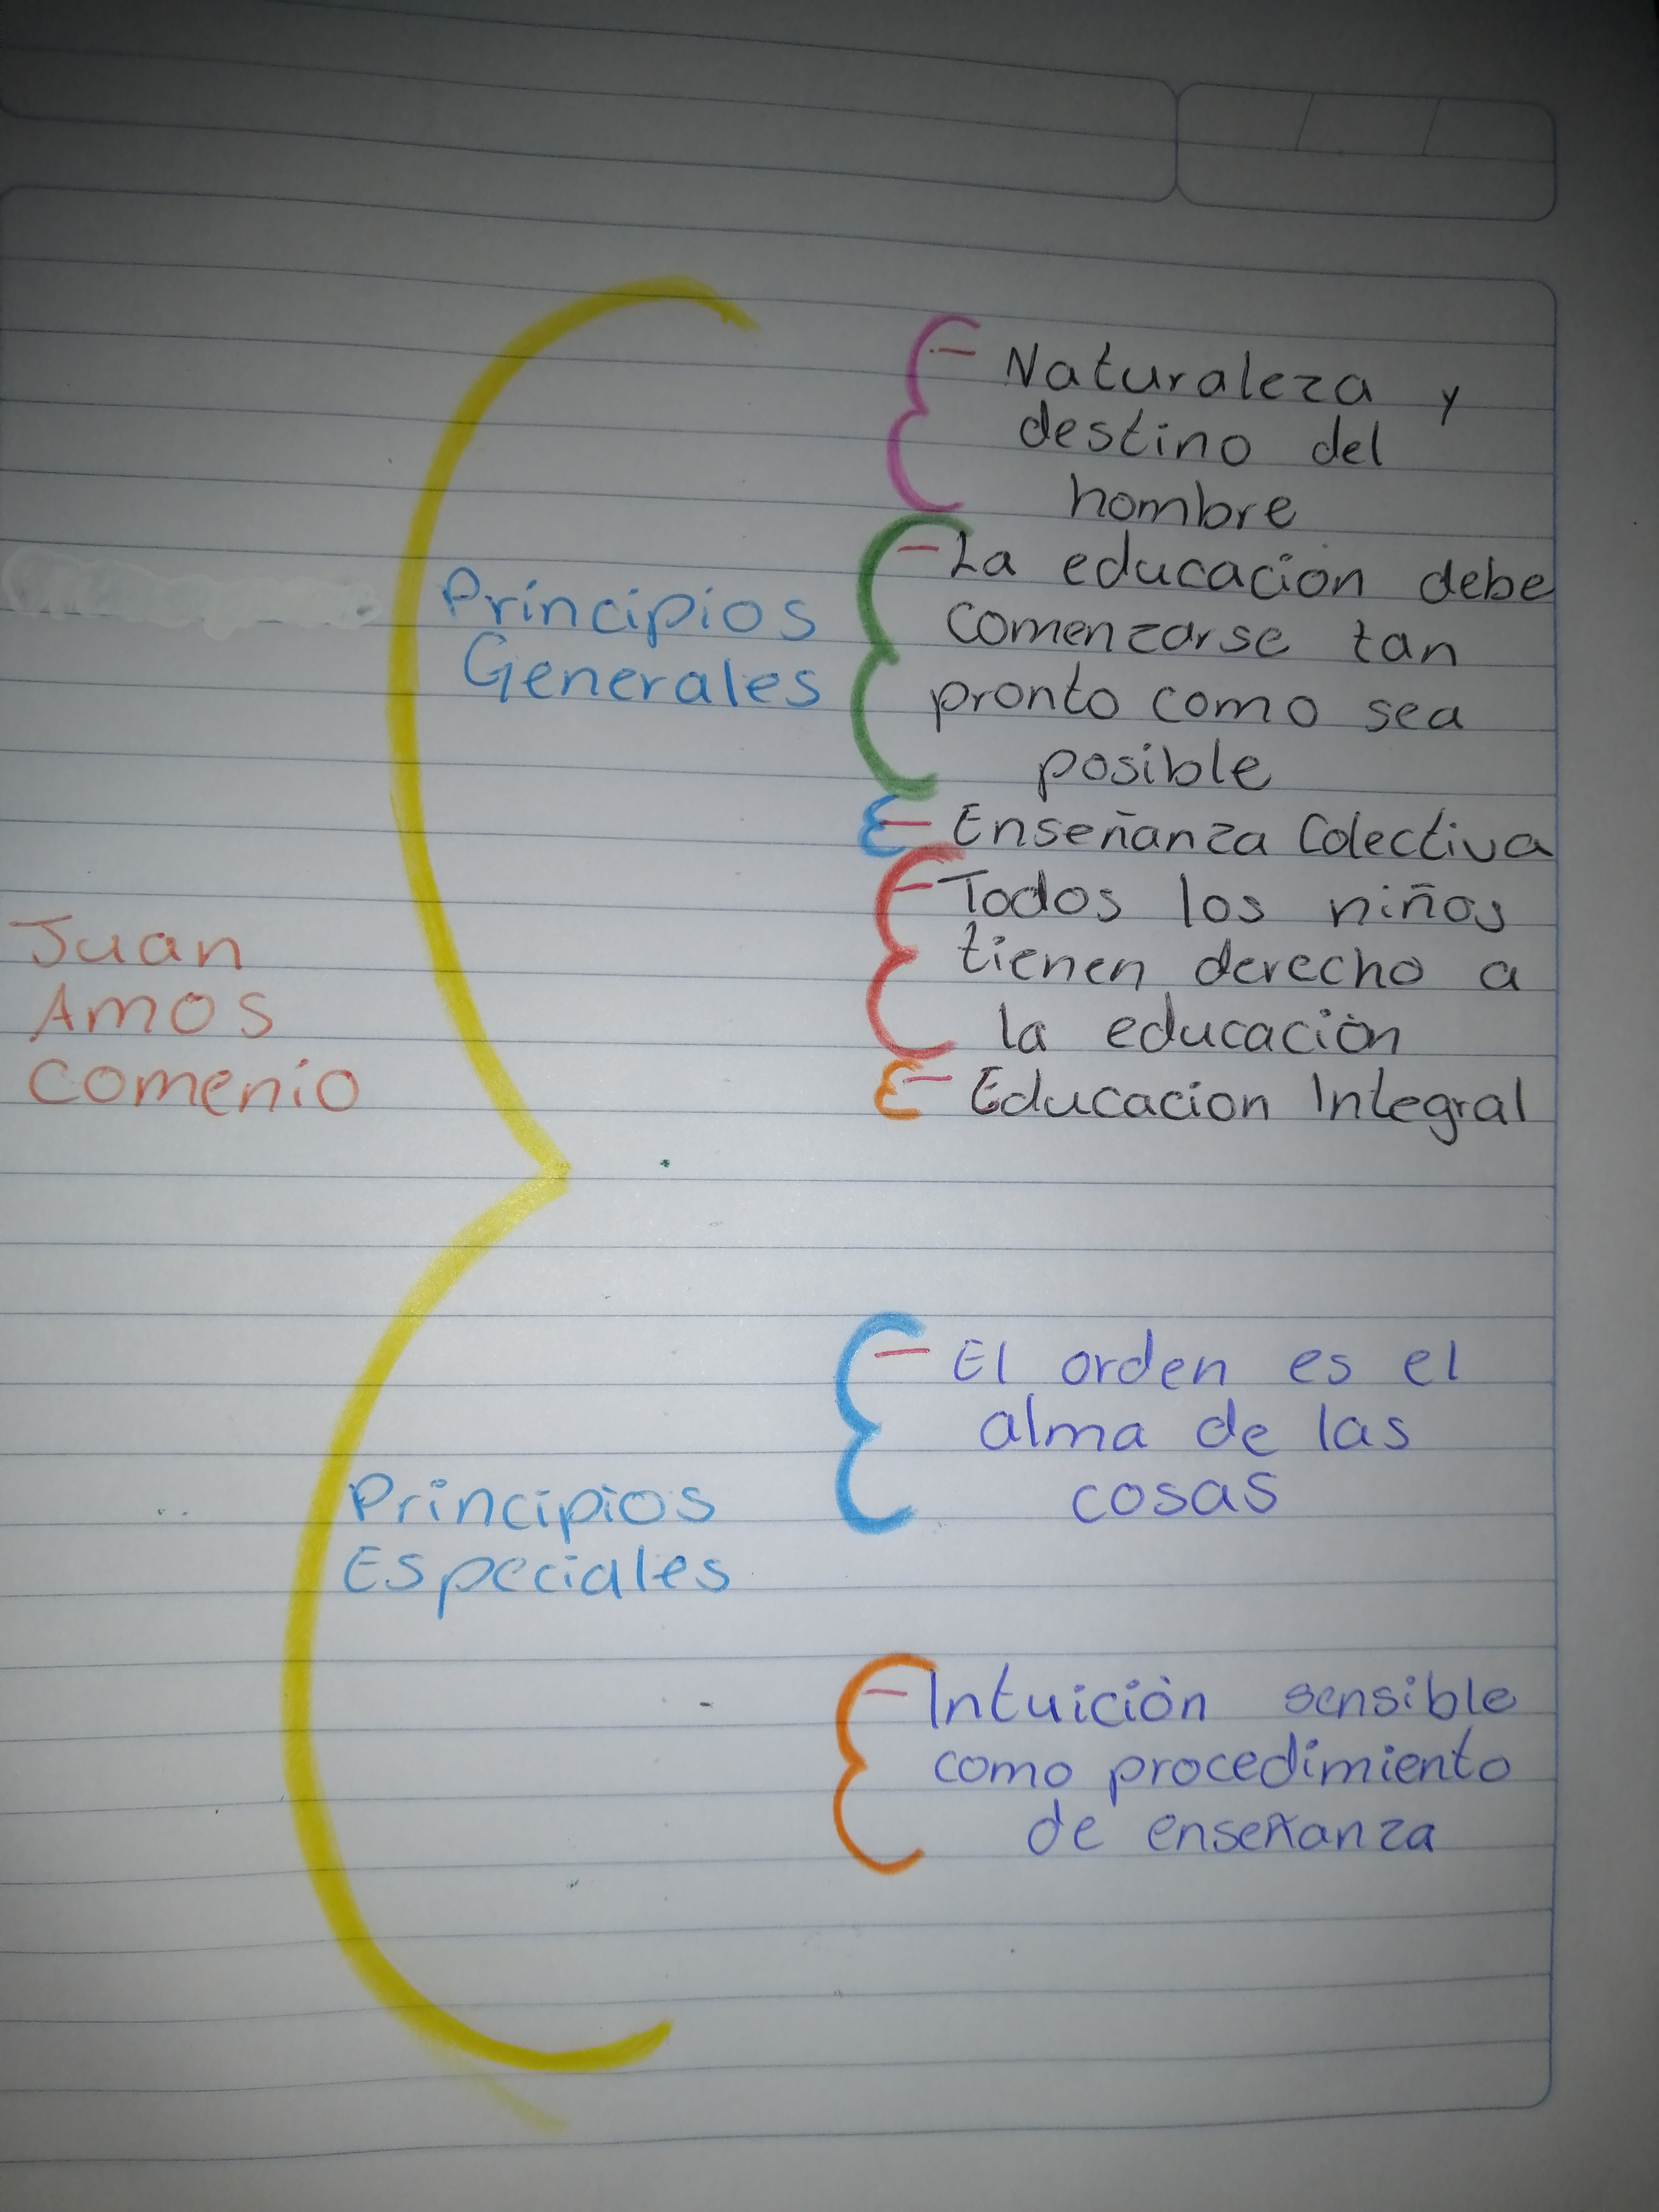 Juan
Amos
Comenio
Principios
Generales
- Naturaleza y
destino del
hombre
- La educación debe
comenzarse tan
pronto como sea
posible
- Enseñanza Colectiva
- Todos los niños
tienen derecho a
la educación
- Educacion Integral
Principios
Especiales
- El orden es el
alma de las
cosas
- Intuición sensible
como procedimiento
de enseñanza